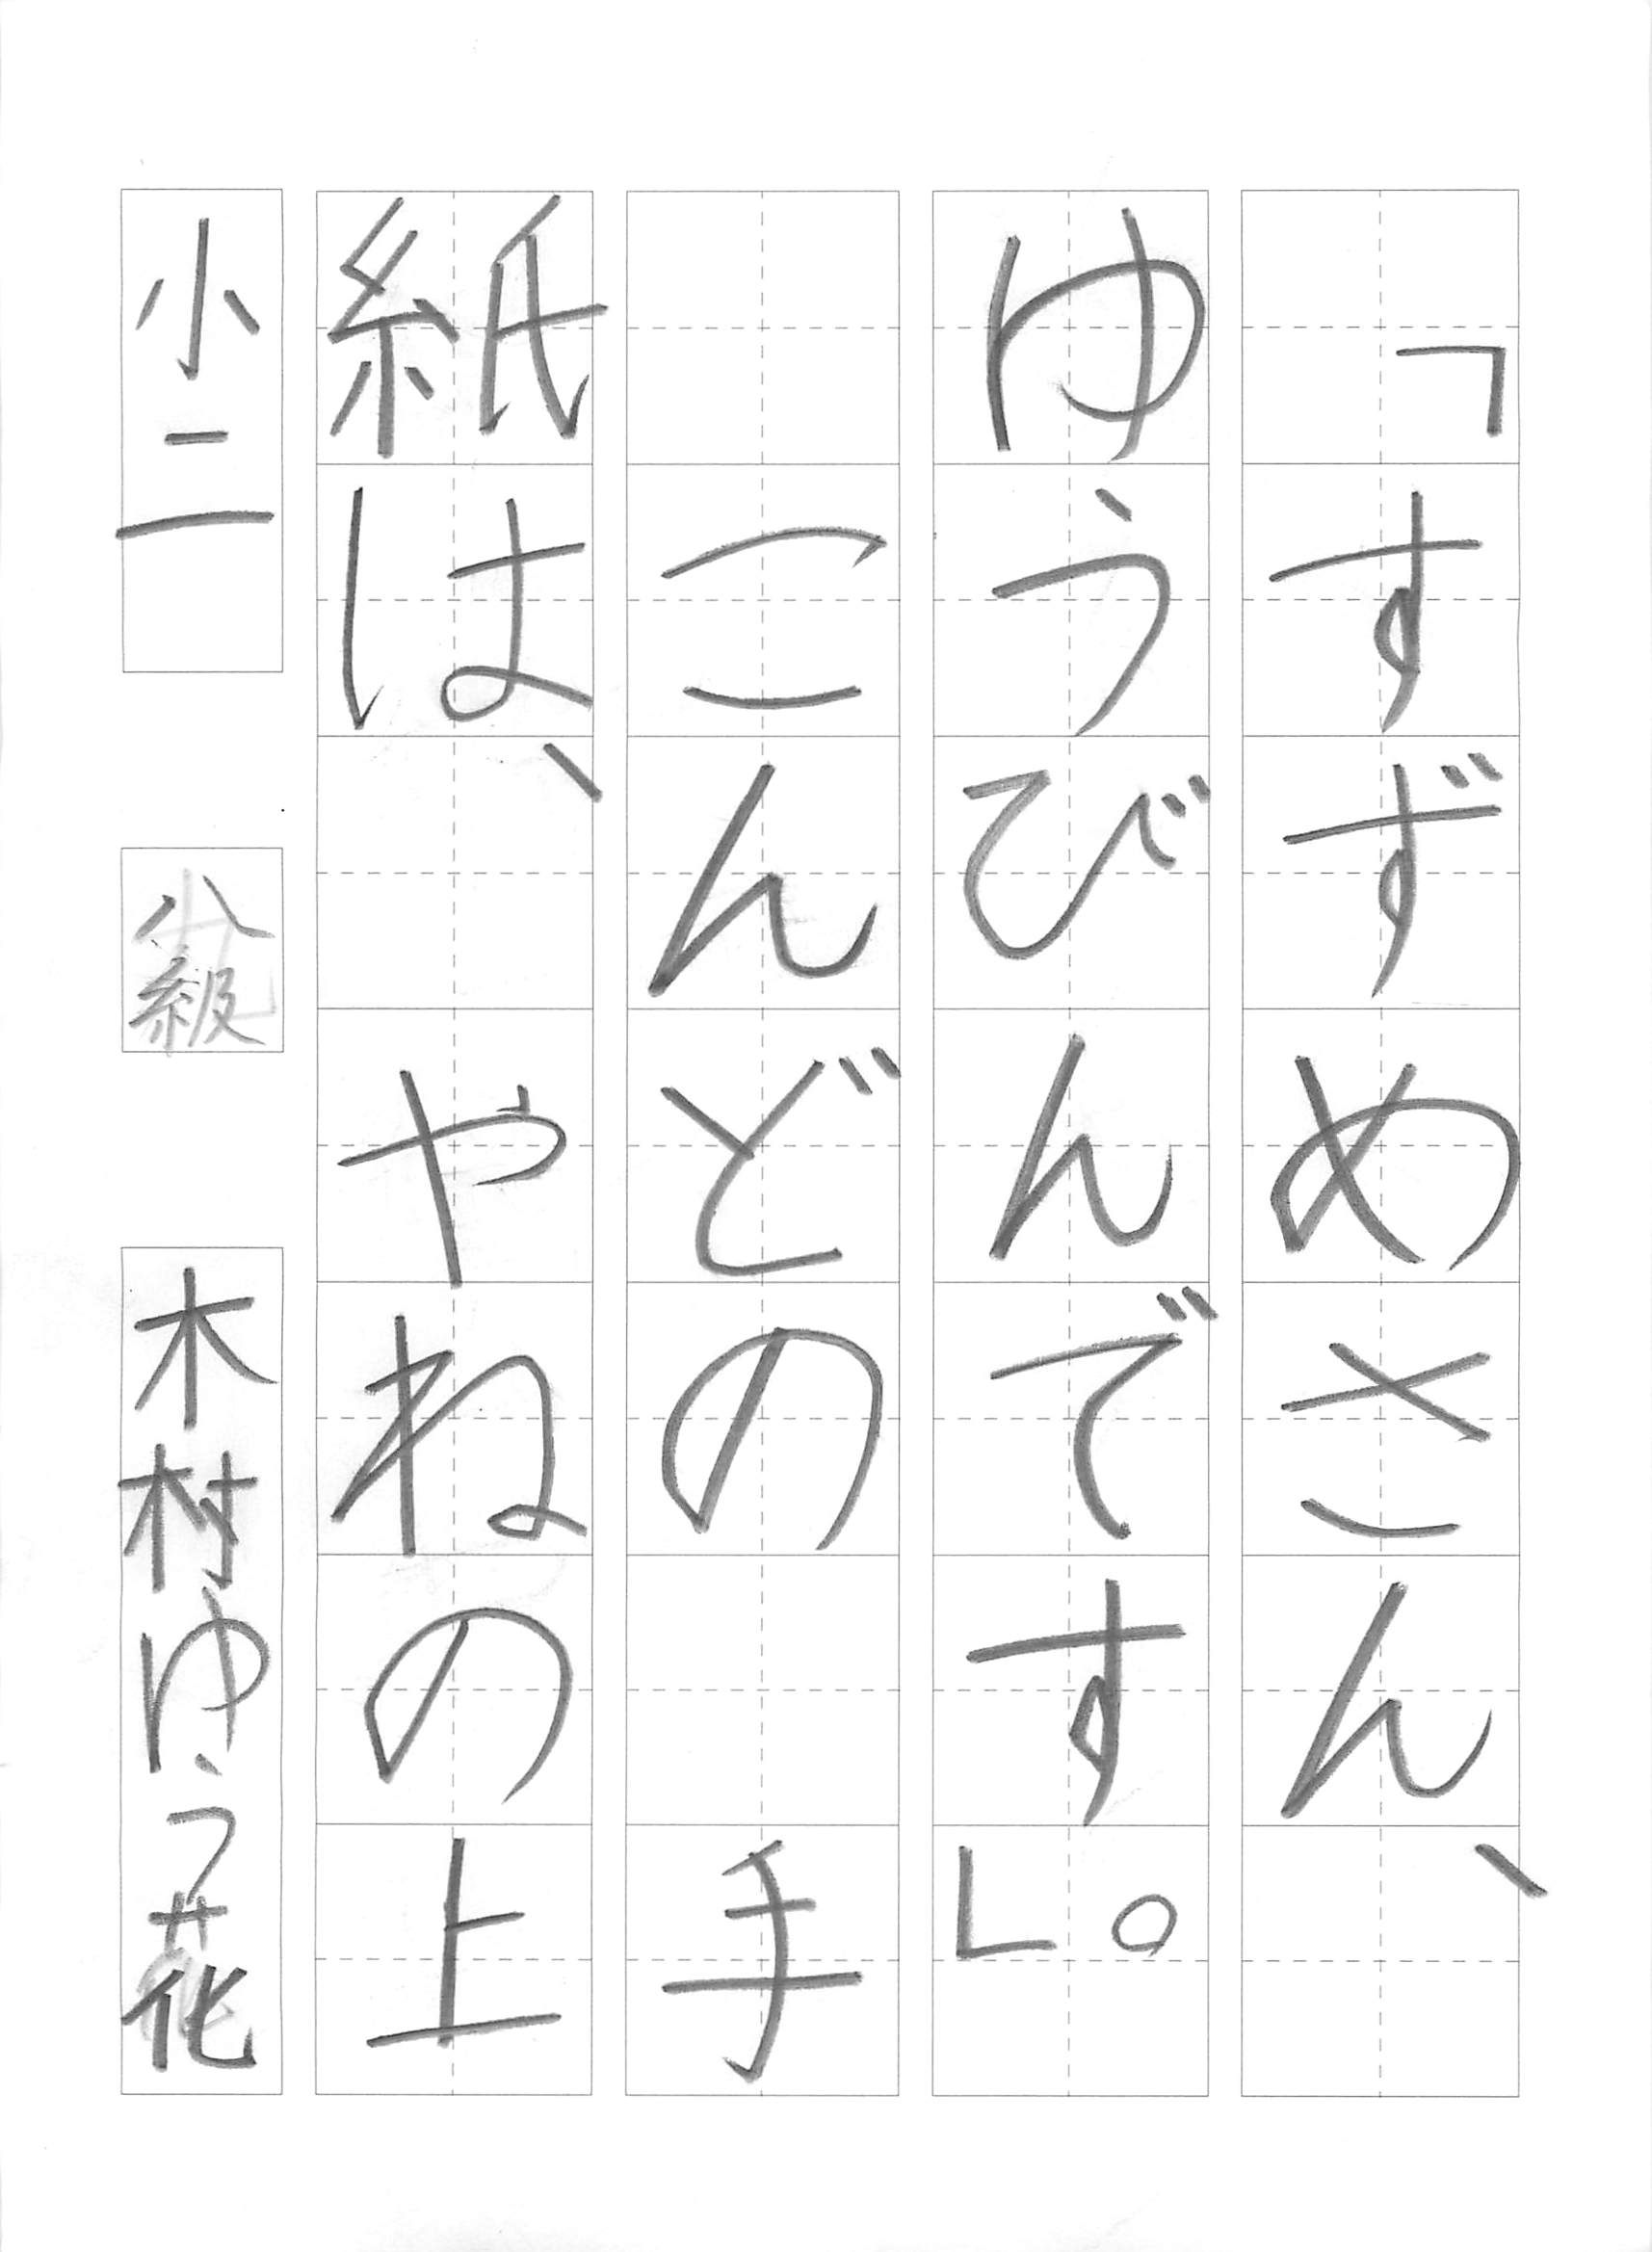 「すずめさん、
ゆうびんです。」
こんどの 手
紙は、やねの上
小二 八級 木村ゆう花